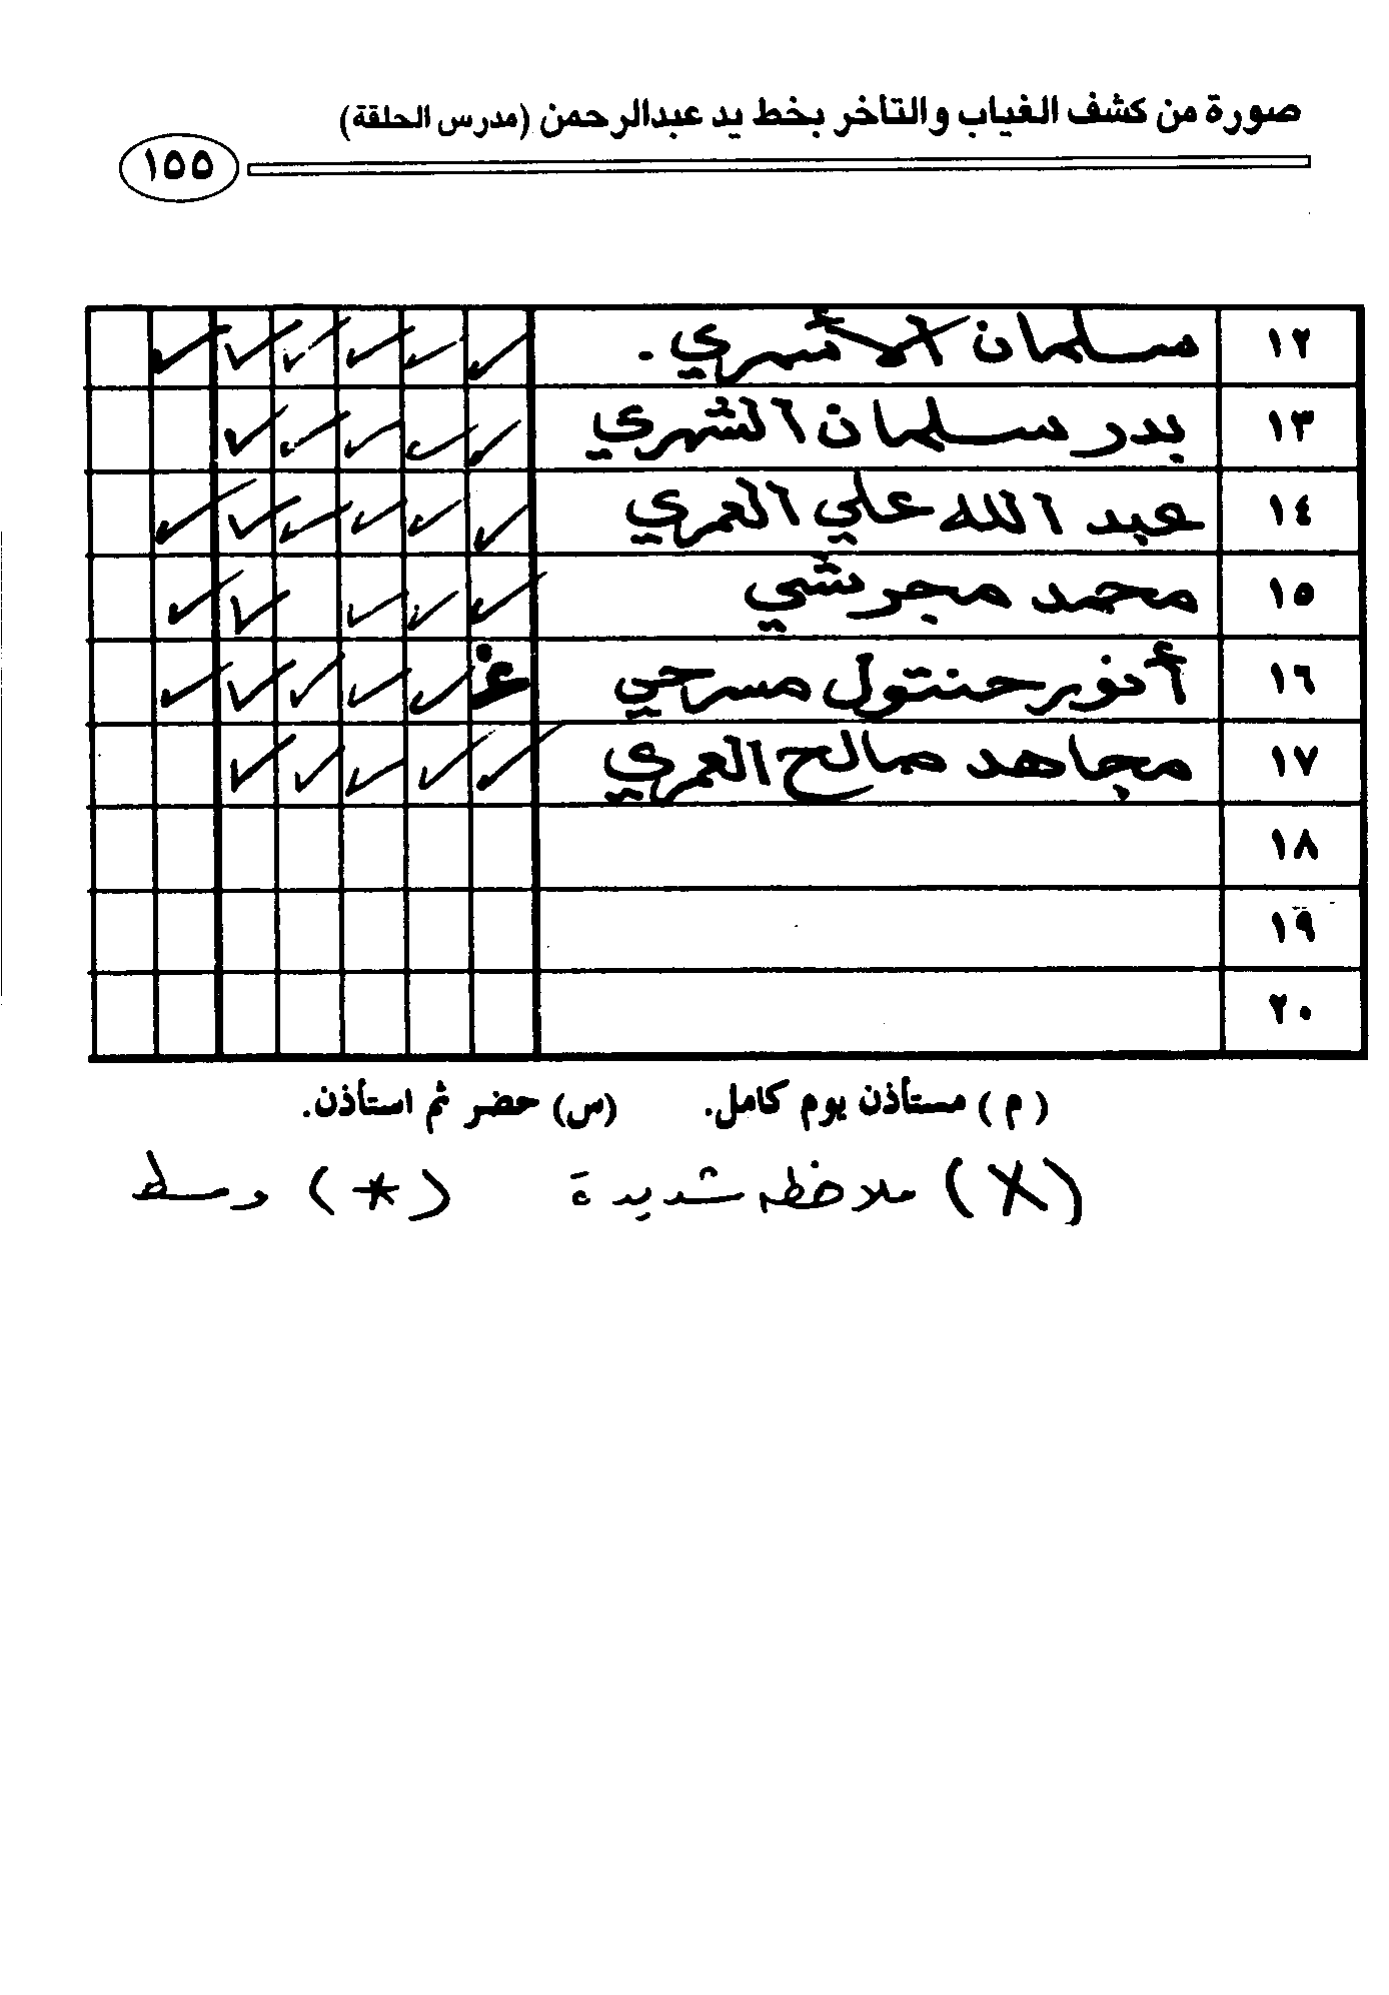 صورة من كشف الغياب والتأخر بخط يد عبدالرحمن (مدرس الحلقة)
١٥٥
١٢ سلمان الأسمري .
١٣ بدر سلمان الشهري
١٤ عبد الله علي العمري
١٥ محمد مجرشي
١٦ أنور حنتول مسرحي غ
١٧ مجاهد صالح العمري
١٨
١٩
٢٠
( م ) مستأذن يوم كامل. (س) حضر ثم استأذن.
(X) ملاحظه شديدة (*) وسط